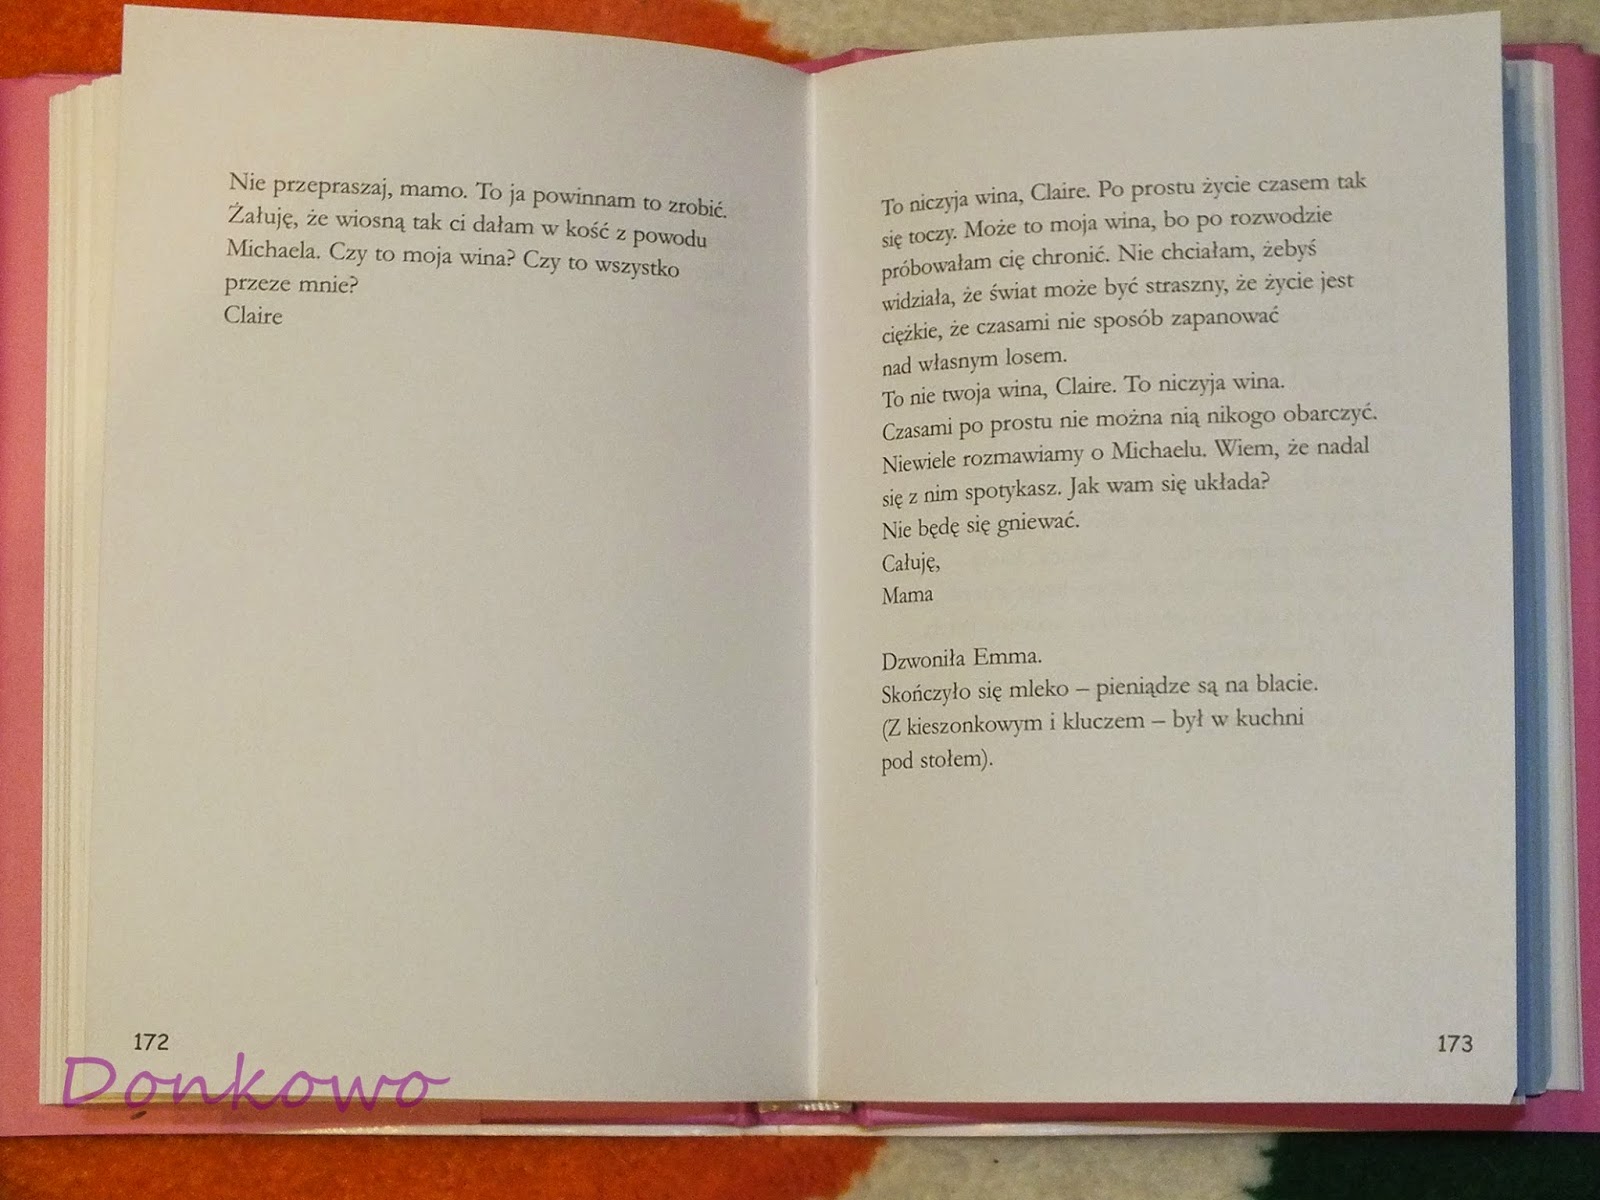 Nie przepraszaj, mamo. To ja powinnam to zrobić.
Żałuję, że wiosną tak ci dałam w kość z powodu
Michaela. Czy to moja wina? Czy to wszystko
przeze mnie?
Claire
172
To niczyja wina, Claire. Po prostu życie czasem tak
się toczy. Może to moja wina, bo po rozwodzie
próbowałam cię chronić. Nie chciałam, żebyś
widziała, że świat może być straszny, że życie jest
ciężkie, że czasami nie sposób zapanować
nad własnym losem.
To nie twoja wina, Claire. To niczyja wina.
Czasami po prostu nie można nią nikogo obarczyć.
Niewiele rozmawiamy o Michaelu. Wiem, że nadal
się z nim spotykasz. Jak wam się układa?
Nie będę się gniewać.
Całuję,
Mama
Dzwoniła Emma.
Skończyło się mleko – pieniądze są na blacie.
(Z kieszonkowym i kluczem – był w kuchni
pod stołem).
173
Donkowo